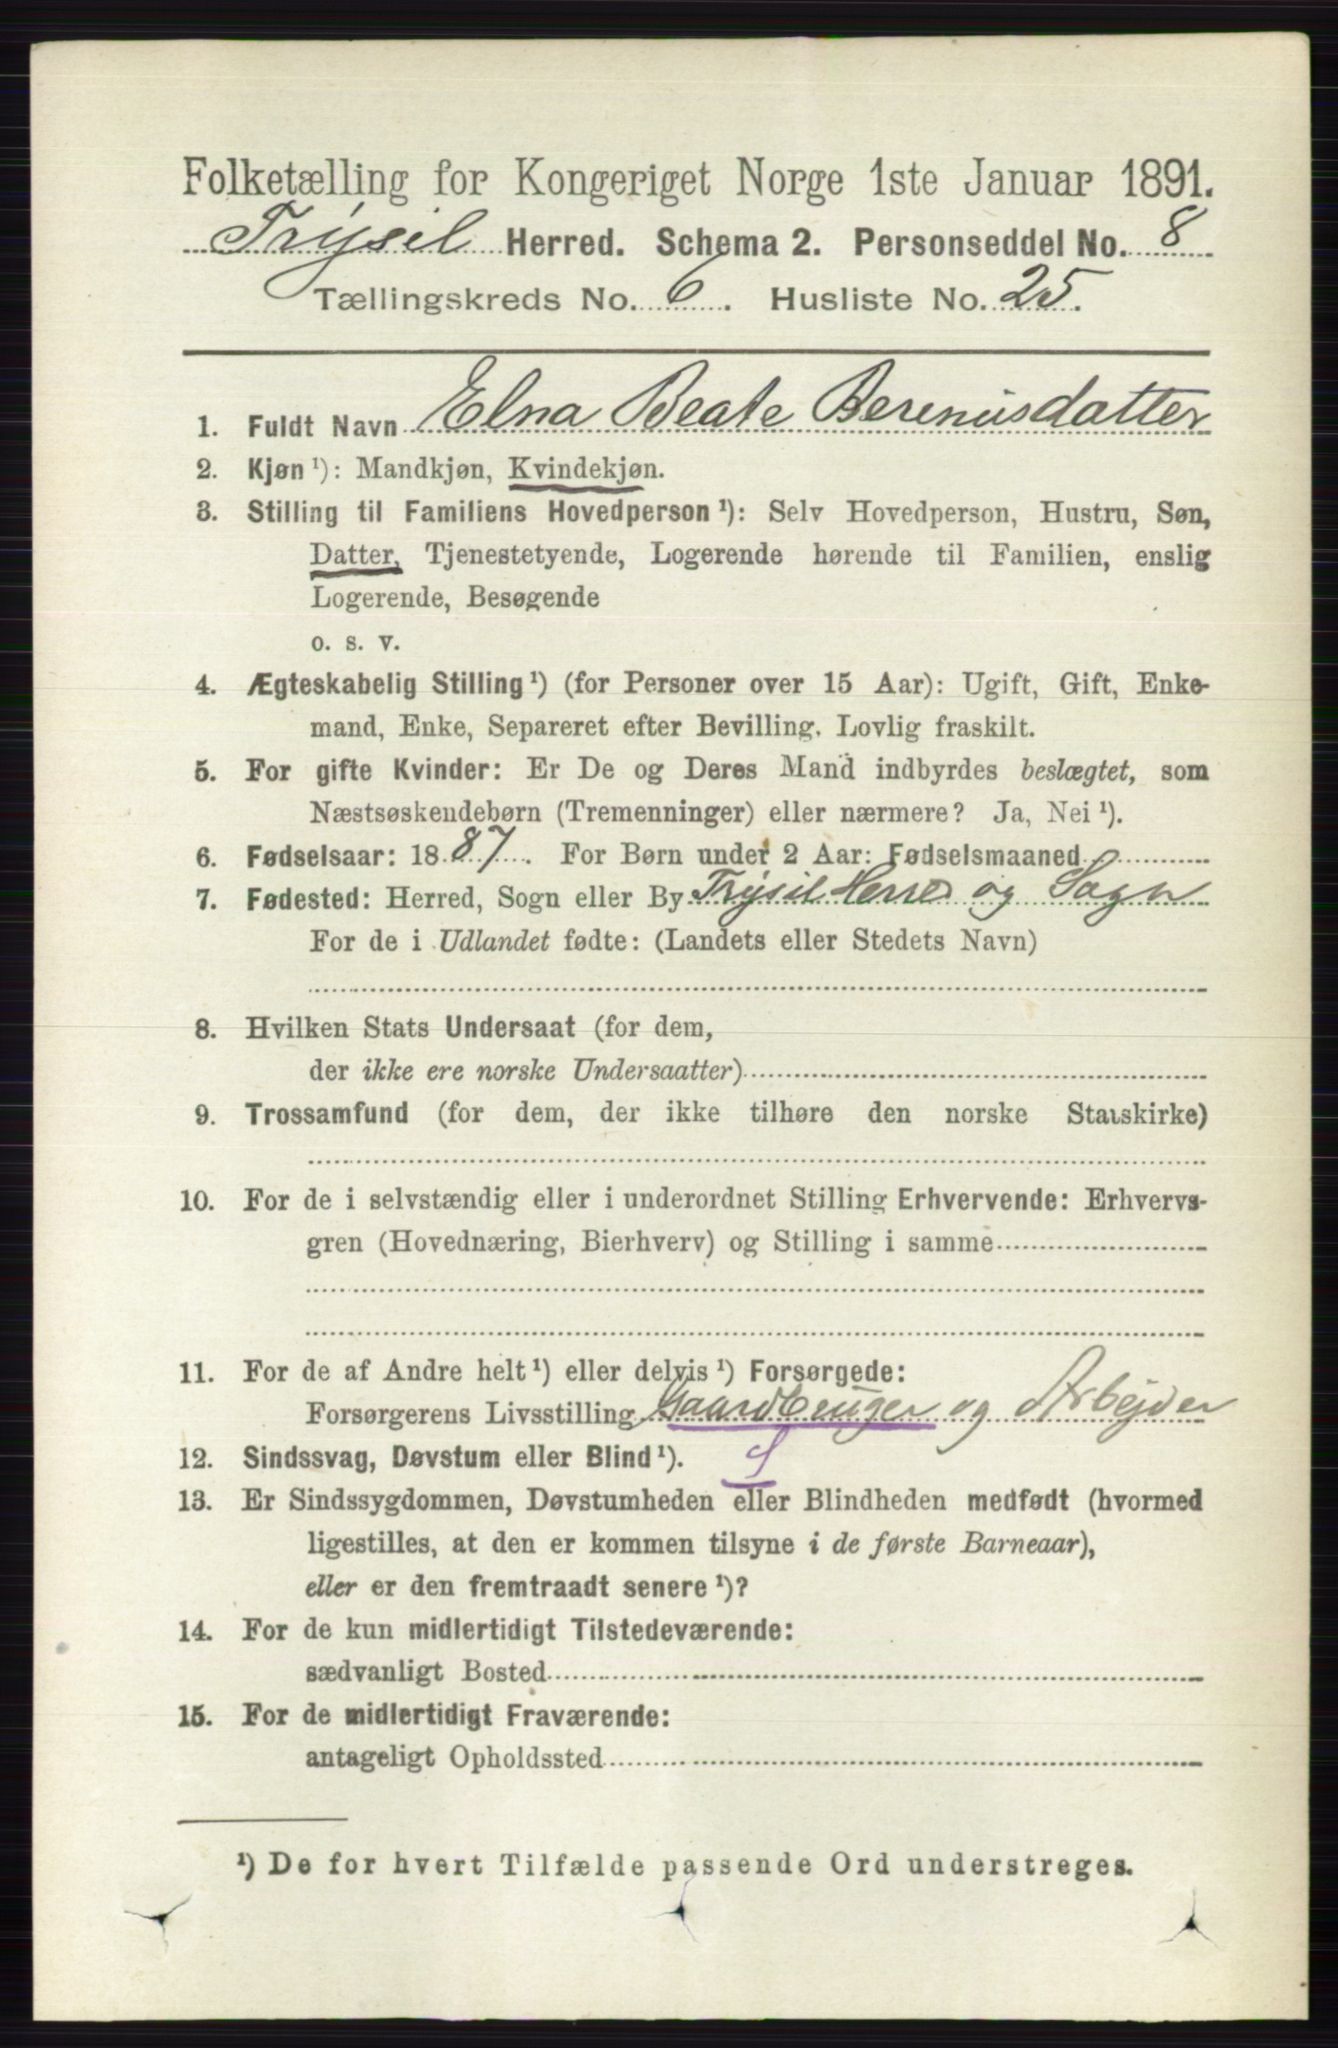 Folketælling for Kongeriget Norge 1ste Januar 1891.
Trysil Herred. Schema 2. Personseddel No. 8
Tællingskreds No. 6. Husliste No. 25.
1. Fuldt Navn Elna Beate Bereniusdatter
2. Kjøn ¹): Mandkjøn, Kvindekjøn.
3. Stilling til Familiens Hovedperson ¹): Selv Hovedperson, Hustru, Søn,
Datter, Tjenestetyende, Logerende hørende til Familien, enslig
Logerende, Besøgende
o. s. v.
4. Ægteskabelig Stilling ¹) (for Personer over 15 Aar): Ugift, Gift, Enke-
mand, Enke, Separeret efter Bevilling. Lovlig fraskilt.
5. For gifte Kvinder: Er De og Deres Mand indbyrdes beslægtet, som
Næstsøskendebørn (Tremenninger) eller nærmere? Ja, Nei ¹).
6. Fødselsaar: 1887. For Børn under 2 Aar: Fødselsmaaned
7. Fødested: Herred, Sogn eller By Trysil Herred og Sogn
For de i Udlandet fødte: (Landets eller Stedets Navn)
8. Hvilken Stats Undersaat (for dem,
der ikke ere norske Undersaatter)
9. Trossamfund (for dem, der ikke tilhøre den norske Statskirke)
10. For de i selvstændig eller i underordnet Stilling Erhvervende: Erhvervs-
gren (Hovednæring, Bierhverv) og Stilling i samme
11. For de af Andre helt ¹) eller delvis ¹) Forsørgede:
Forsørgerens Livsstilling Gaardbruger og Arbejder
12. Sindssvag, Døvstum eller Blind ¹).
13. Er Sindssygdommen, Døvstumheden eller Blindheden medfødt (hvormed
ligestilles, at den er kommen tilsyne i de første Barneaar),
eller er den fremtraadt senere ¹)?
14. For de kun midlertidigt Tilstedeværende:
sædvanligt Bosted
15. For de midlertidigt Fraværende:
antageligt Opholdssted
¹) De for hvert Tilfælde passende Ord understreges.